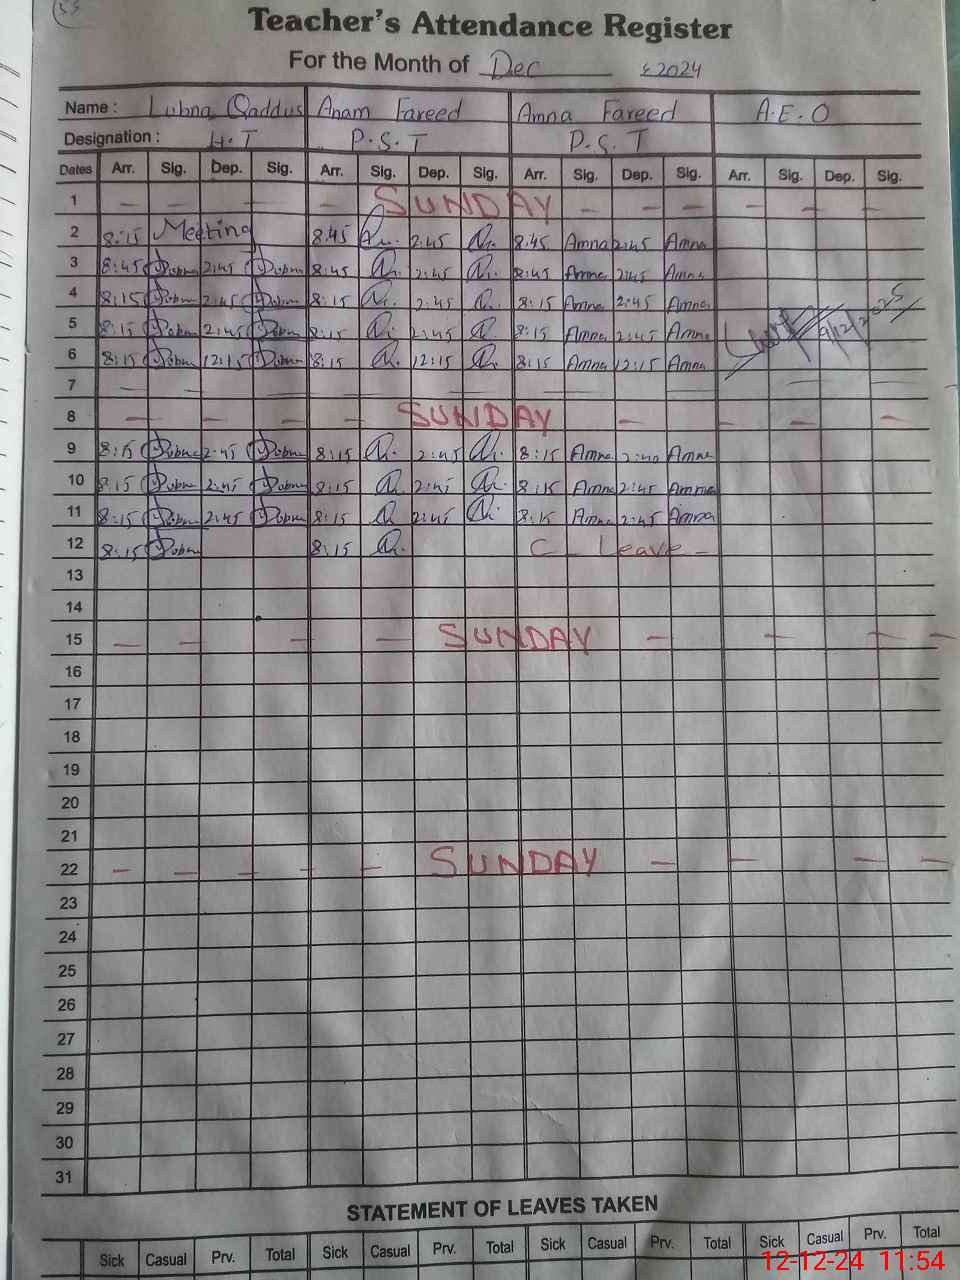 Teacher's Attendance Register
For the Month of Dec 2024
Name : Lubna Qaddus Anam Fareed Amna Fareed A.E.O
Designation : H.T P.S.T P.S.T
Dates Arr. Sig. Dep. Sig. Arr. Sig. Dep. Sig. Arr. Sig. Dep. Sig. Arr. Sig. Dep. Sig.
1 — — — — — SUNDAY — — — — — —
2 8:15 Meeting 8:45 2:45 8:45 Amna 2:45 Amna
3 8:45 2:45 8:45 2:45 8:45 Amna 2:45 Amna
4 8:15 2:45 8:15 2:45 8:15 Amna 2:45 Amna
5 8:15 2:45 8:15 2:45 8:15 Amna 2:45 Amna
6 8:15 12:15 8:15 12:15 8:15 Amna 12:15 Amna
7
8 — — — — SUNDAY — — — —
9 8:15 2:45 8:15 2:45 8:15 Amna Amna
10 8:15 2:45 8:15 2:45 8:15 Amna 2:45 Amna
11 8:15 2:45 8:15 2:45 8:15 Amna 2:45 Amna
12 8:15 8:15 C — Leave —
13
14
15 — — — — SUNDAY — — — —
16
17
18
19
20
21
22 — — — — — SUNDAY — — — —
23
24
25
26
27
28
29
30
31
STATEMENT OF LEAVES TAKEN
Sick Casual Prv. Total Sick Casual Prv. Total Sick Casual Prv. Total Sick Casual Prv. Total
12-12-24 11:54